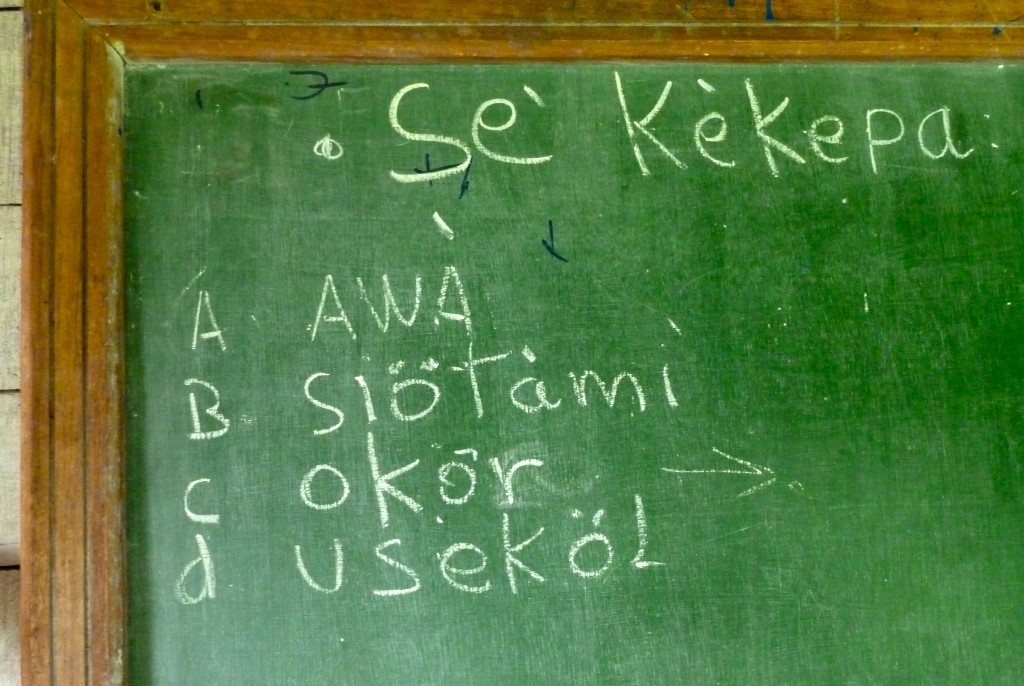 Sè Kèkepa.
A AWÀ
B SIÖTÀMÌ
C OKÖR →
d USEKÖL